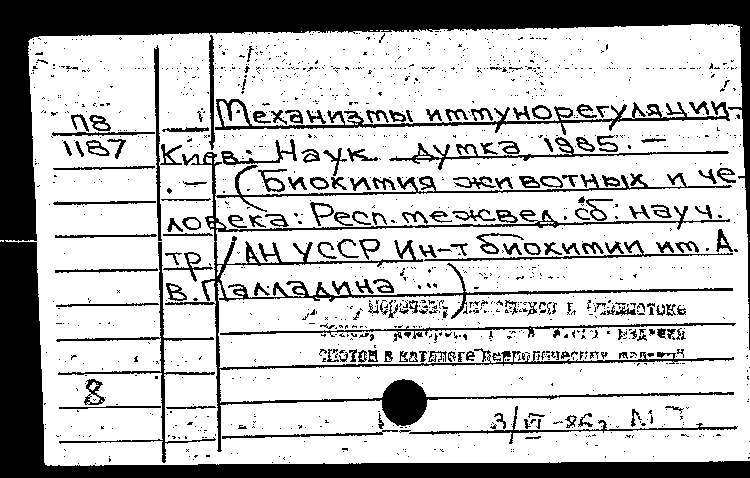 П8
1187
Механизмы иммунорегуляции.-
Киев: Наук. думка, 1985. —
. — (Биохимия животных и че-
ловека: Респ. межвед. сб. науч.
тр. / АН УССР, Ин-т биохимии им. А.
В. Палладина ...).
Перечень, имеющихся в библиотеке
томов, номеров,
смотри в каталоге периодических изданий"
8
3/VI-86г.